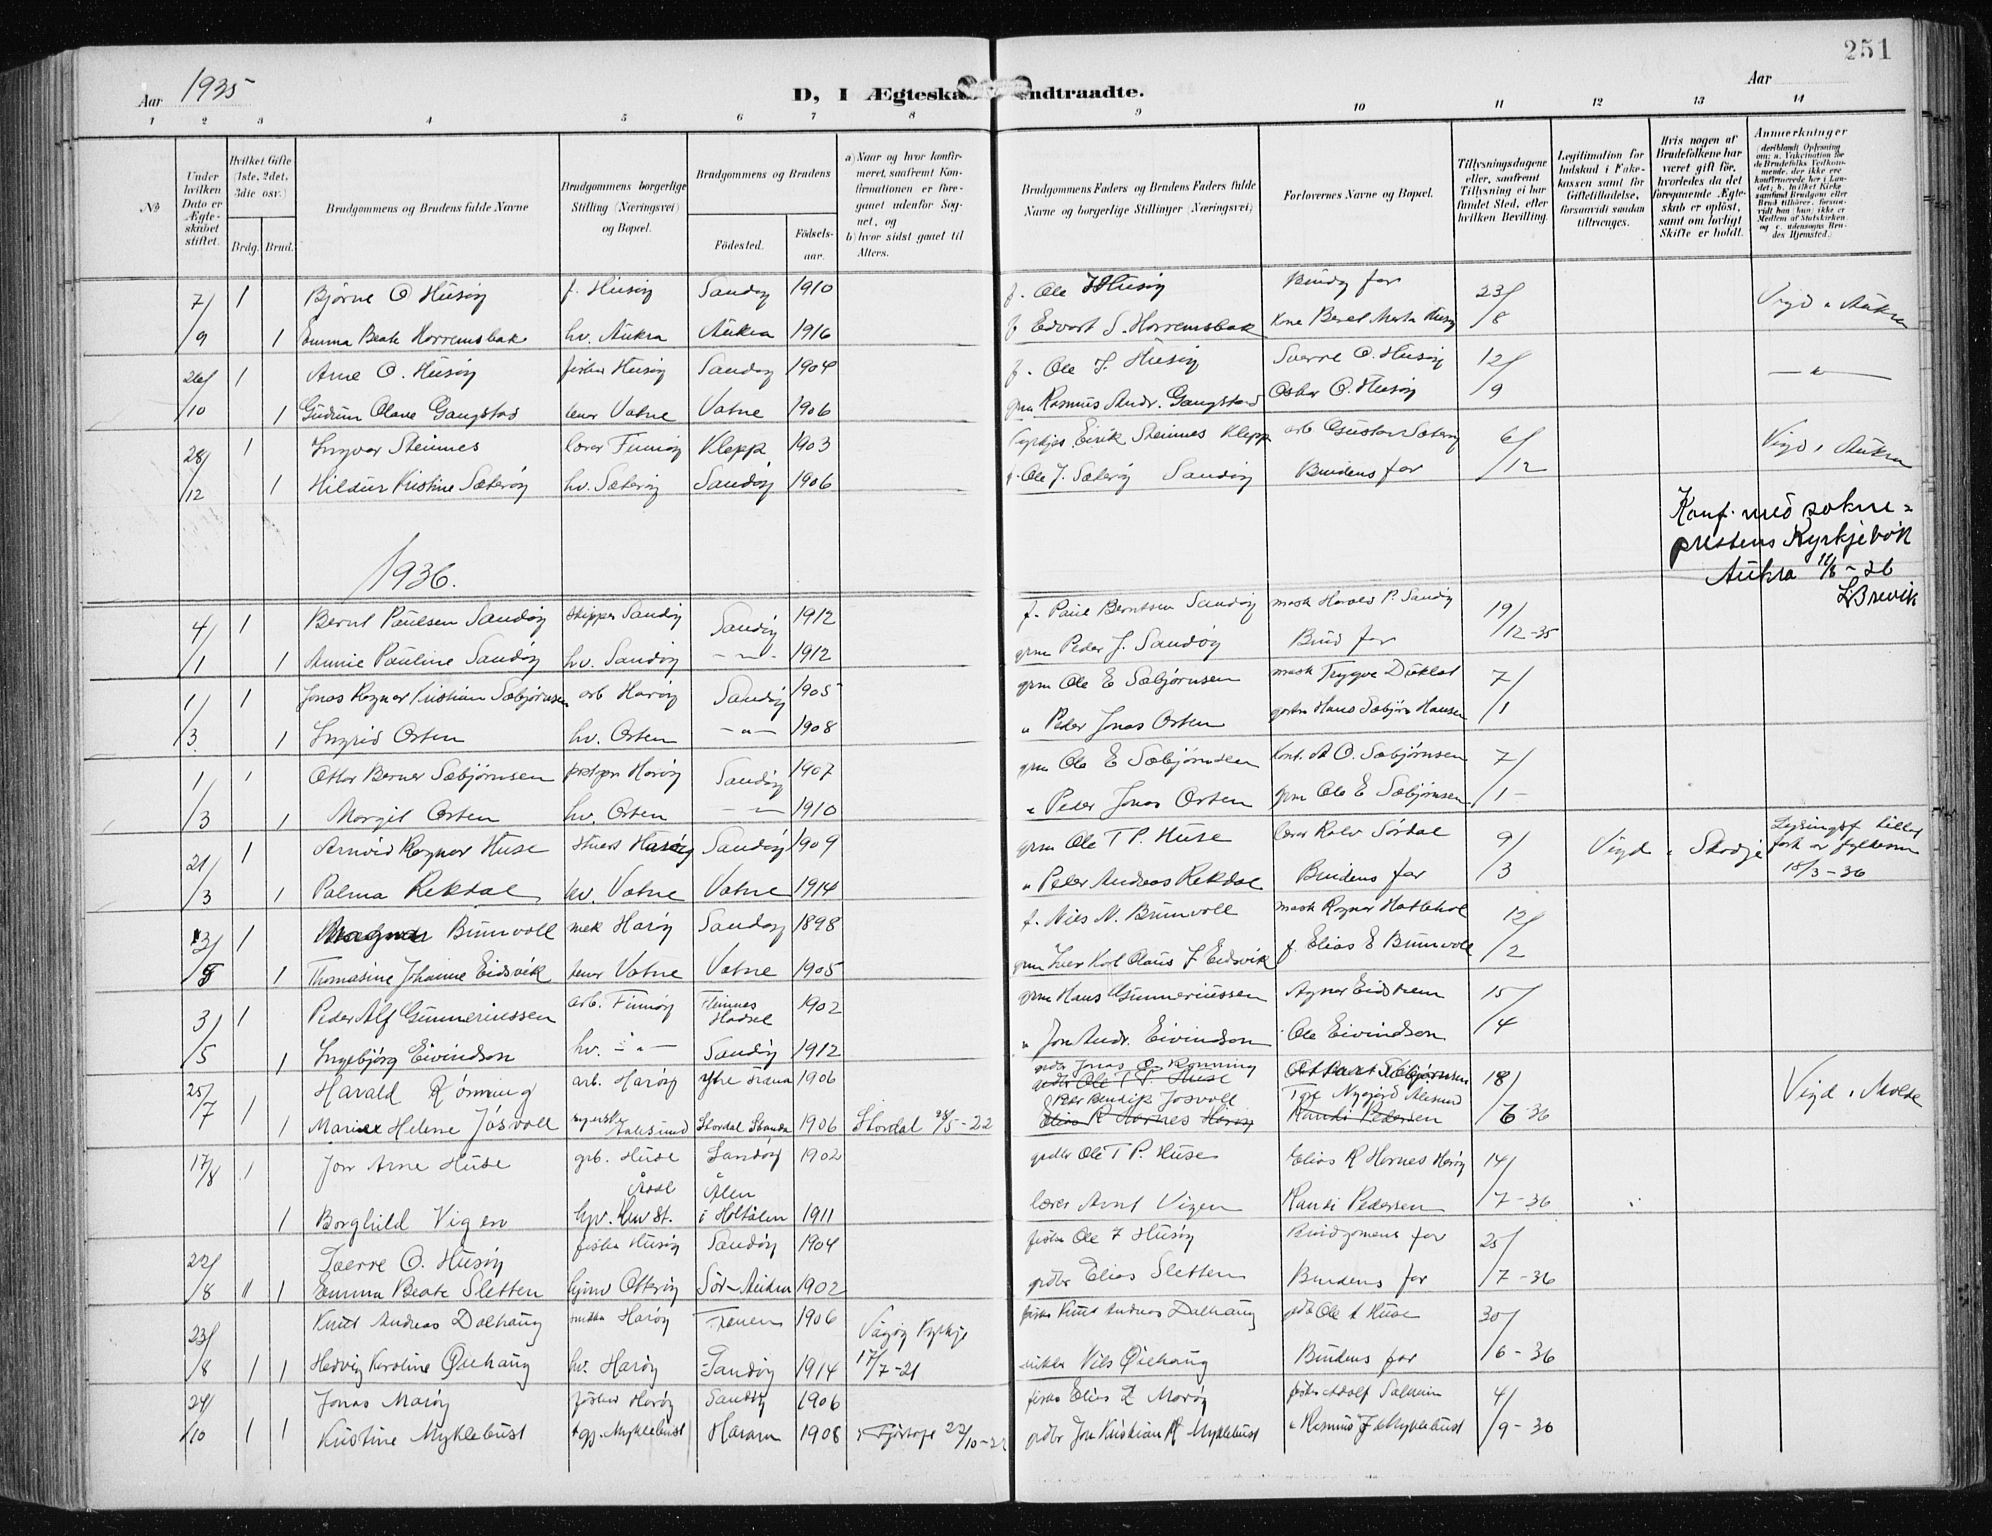 251
Aar 1935
D, I Ægteska ndtraadte.
Aar
1 2 3 4 5 6 7 8 9 10 11 12 13 14
No
Under hvilken Dato er Ægteskabet stiftet.
Hvilket Gifte (1ste, 2det, 3die osv.)
Brdg. Brud.
Brudgommens og Brudens fulde Navne
Brudgommens borgerlige Stilling (Næringsvei) og Bopæl.
Brudgommens og Brudens
Fødested.
Fødselsaar.
a) Naar og hvor konfirmeret, saafremt Konfirmationen er foregaaet udenfor Sognet, og
b) hvor sidst gaaet til Alters.
Brudgommens Faders og Brudens Faders fulde Navne og borgerlige Stillinger (Næringsvei)
Forlovernes Navne og Bopæl.
Tillysningsdagene eller, saafremt Tillysning ei har fundet Sted, efter hvilken Bevilling.
Legitimation for Indskud i Fakekassen samt for Giftetilladelse, forsaavidt saadan tiltrænges.
Hvis nogen af Brudefolkene har været gift før, hvorledes da det foregaaende Ægteskab er opløst, samt om lovligt Skifte er holdt.
Anmærkninger
7/9 1 Bjørne O Husøy f. Husøy Sandøy 1910 f. Ole J Husøy Brudg far 23/8 Vigd i Aukra
1 Emma Beate Horremsbak hv. Aukra Aukra 1916 f Edvart S. Horremsbak
26/10 1 Arne O. Husøy fisker Husøy Sandøy 1904 f. Ole J. Husøy Sverre O. Husøy 12/9 — " —
1 Gudrun Olave Gangstad Vatne Vatne 1906 grm Rasmus Andr. Gangstad Oskar O. Husøy
28/12 1 Ingvar Steinnes lærer Finnøy Klepp 1903 Eirik Steinnes Klepp arb Gustav Sæterøy 6/12 Vigd i Aukra
1 Hildur Kristine Sæterøy hv. Sæterøy Sandøy 1906 f. Ole J. Sæterøy Sandøy Brudens far
Konf. med sokne-
prestens Kyrkjebok
Aukra 11/8 - 36
L Brevik
1936.
4/1 1 Bernt Paulsen Sandøy skipper Sandøy Sandøy 1912 f. Paul Berntsen Sandøy mask Harald P. Sandøy 19/12-35
1 Annie Pauline Sandøy hv. Sandøy — " — 1912 grm Peder J. Sandøy Brud far
1/3 1 Jonas Ragnar Kristian Sæbjørnsen arb Harøy Sandøy 1905 grm Ole E Sæbjørnsen mask Trygve 7/1
1 Ingrid Orten hv. Orten — " — 1908 " Peder Jonas Orten Hans Sæbjørn Hansen
1/3 1 Ottar Berner Sæbjørnsen Harøy Sandøy 1907 grm Ole E Sæbjørnsen O. Sæbjørnsen 7/1 -
1 Margit Orten hv. Orten — " — 1910 " Peder Jonas Orten grm Ole E Sæbjørnsen
21/3 1 Arnvid Ragnar Huse Harøy Sandøy 1909 grm Ole T P. Huse lærer Rolv Sørdal 9/3 Vigd i Skodje
1 Palma Rekdal hv. Vatne Vatne 1914 " Peter Andreas Rekdal Brudens far 18/3-36
3/5 1 Ragnar Brunvoll mek Harøy Sandøy 1898 f. Nils N. Brunvoll mask Ragnar Hatlehol 12/2
1 Thomasine Johanne Eidsvik Vatne Vatne 1905 Karl Olaus J Eidsvik f. Elias E Brunvoll
3/5 1 Peder Alf Gunneriussen arb. Finnøy Hadsel 1902 grm Hans Gunneriussen Agnar Eidhem 15/4
1 Ingebjørg Eivindson hv. — " — Sandøy 1912 " Jon Andr. Eivindson Ole Eivindson
25/7 1 Harald Rønning arb. Harøy Ytre Fræna 1906 Jonas O. Rønning Ole T P. Huse 18/6-36 Vigd i Molde
1 Marie Helene Jøsvoll Aalesund Stordal Stranda 1906 Stordal 28/5-22 Peder Bendik Jøsvoll Elias R Hornes Harøy Tor Nygjerd Alesund Randi Pedersen
17/8 1 Jon Arne Huse grb. Huse Sandøy 1902 grdbr Ole T P. Huse Elias R Hornes Harøy 14/7-36
1 Borghild Vigen Ålen i Holtålen 1911 lærer Arnt Vigen Randi Pedersen
22/8 Sverre O. Husøy fisker Husøy Sandøy 1904 fisker Ole J Husøy Brudgomens far 25/7-36
" 1 Emma Beate Sletten hjmv Otterøy Sør-Aukra 1902 grdbr Elias Sletten Brudens far
23/8 Knut Andreas Dalhaug snikkar Harøy Frænen 1906 Vågøy Kyrkje 17/7-21 fisker Knut Andreas Dalhaug Ole A Huse 30/6-36
1 1 Hedvig Karoline Øiehaug hv. Harøy Sandøy 1914 snikkar Nils Øiehaug Brudens far
24/10 Jonas Marøy fisker Harøy Sandøy 1906 fisker Elias Z Marøy fisker Adolf 4/9-36
1 1 Kristine Myklebust Myklebust Haram 1908 i Fjørtoft 22/10-22 grdbr Jon Kristian R Myklebust " Rasmus J Myklebust